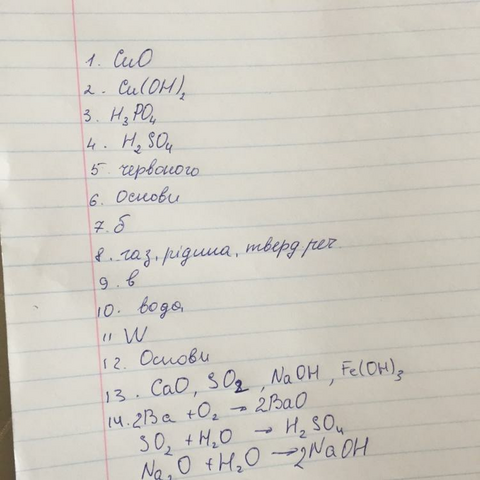 1. CuO
2. Cu(OH)₂
3. H₃PO₄
4. H₂SO₄
5 червоного
6. Основи
7. б
8. газ, рідина, тверд реч
9. в
10. вода
11 W
12. Основи
13. CaO, SO₂, NaOH, Fe(OH)₃
14. 2Ba + O₂ → 2BaO
SO₂ + H₂O → H₂SO₄
Na₂O + H₂O → 2NaOH